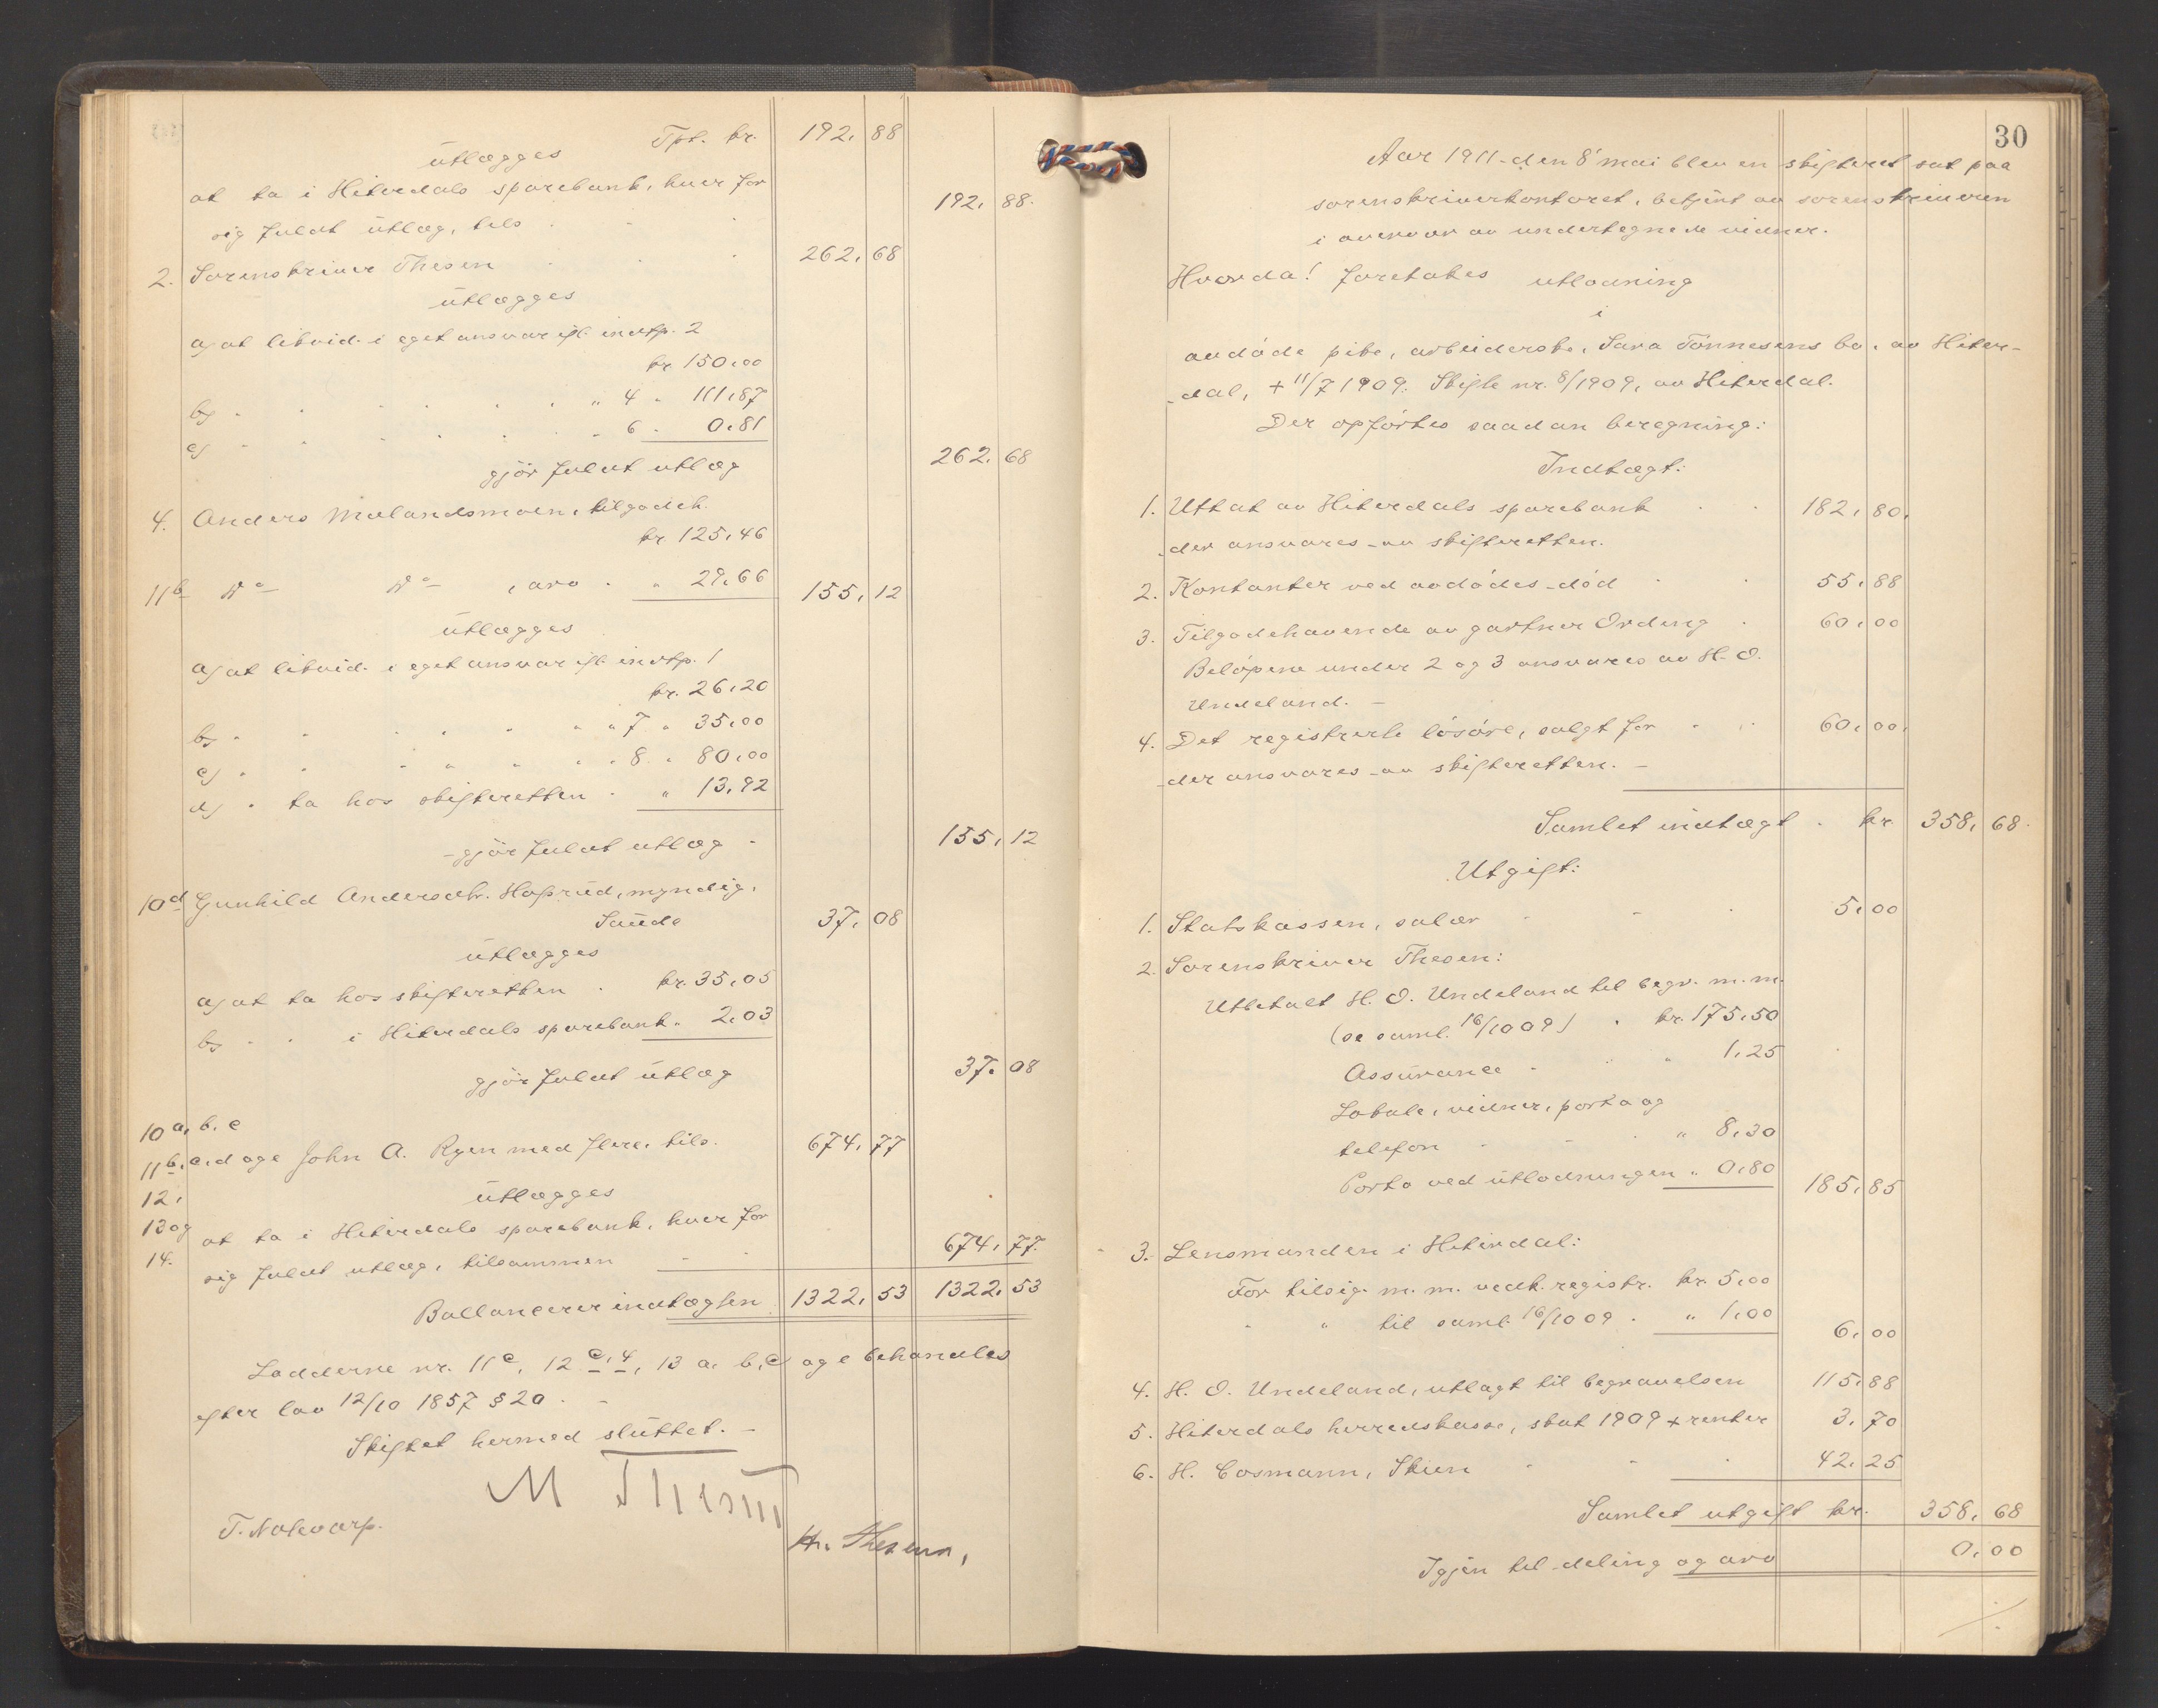 Tpt. kr. 192,88
ütlægges
at ta i Hiterdals sparebank, hver for
sig fuldt ütlæg, tels. 192,88.
2. Sorenskriver Thesen 262,68
ütlægges
a) at likvid. i eget ansvar ifl. indtp. 2
kr. 150,00
b) " 4 " 111,87
c) " 6 " 0,81
gjör fuldt utlæg 262,68
4. Anders Mælandsmoen, tilgodeh.
kr. 125,46
11b do do , arv " 29,66 155,12
ütlægges
a) at likvid. i eget ansvar ifl. indtp. 1
kr. 26,20
b) " 7 " 35,00
c) " 8 " 80,00
d) " ta hos skifteretten " 13,92
gjör fuldt utlæg 155,12
10d Gunhild Andersdtr. Haprüd, myndig,
Saude 37,08
ütlægges
a) at ta hos skifteretten kr. 35,05
b) " " i Hiterdals sparebank " 2,03
gjör fuldt ütlæg 37,08
10 a, b, c
11 b, c, d og e John A. Ryen med flere, tils. 674,77
12, ütlægges
13 og at ta i Hiterdals sparebank, hver for
14. sig fuldt utlæg, tilsammen 674,77.
Ballancerer indtægten 1322,53 1322,53
Lodderne nr. 11 c, 12 c, 4, 13 a, b, c og e behandles
efter lov 12/10 1857 § 20.
Skiftet hermed slüttet. –
M Thesen
T. Notevarp.
Kr. Thesen,
30
Aar 1911 den 8' mai blev en skifteret sat paa
sorenskriverkontoret, betjent av sorenskriveren
i overvær av undertegnede vidner.
Hvorda! foretokes utlodning
i
avdöde pike, arbeiderske, Sara Tönnesens bo, av Hiter-
dal, + 11/7 1909. Skifte nr. 8/1909, av Hiterdal.
Der opförtes saadan beregning:
Indtægt:
1. Uttat av Hiterdals sparebank 182,80.
der ansvares av skifteretten.
2. Kontanter ved avdödes död 55,88
3. Tilgodehavende av gartner Ording 60,00
Belöpene under 2 og 3 ansvares av H. O.
Undeland. –
4. Det registrerte lösöre, solgt for 60,00.
der ansvares av skifteretten. –
Samlet indtægt kr 358,68.
Utgift:
1. Statskassen, salær 5,00
2. Sorenskriver Thesen:
Utbetalt H. O. Undeland til begr. m.m.
(se saml. 16/10 09) kr. 175,50
Assürance " 1,25
Lokale, vidner, porto og
telefon " 8,30
Porto ved ütlodningen " 0,80 185,85
3. Lensmanden i Hiterdal:
For tilsig. m.m. vedk. registr. kr. 5,00
" " til saml. 16/10 09 " 1,00 6,00
4. H. O. Undeland, utlagt til begravelsen 115,88
5. Hiterdals herredskasse, skat 1909 + renter 3,70
6. H. Cosmann, Skien 42,25
Samlet utgift kr. 358,68
Igjen til deling og arv 0,00